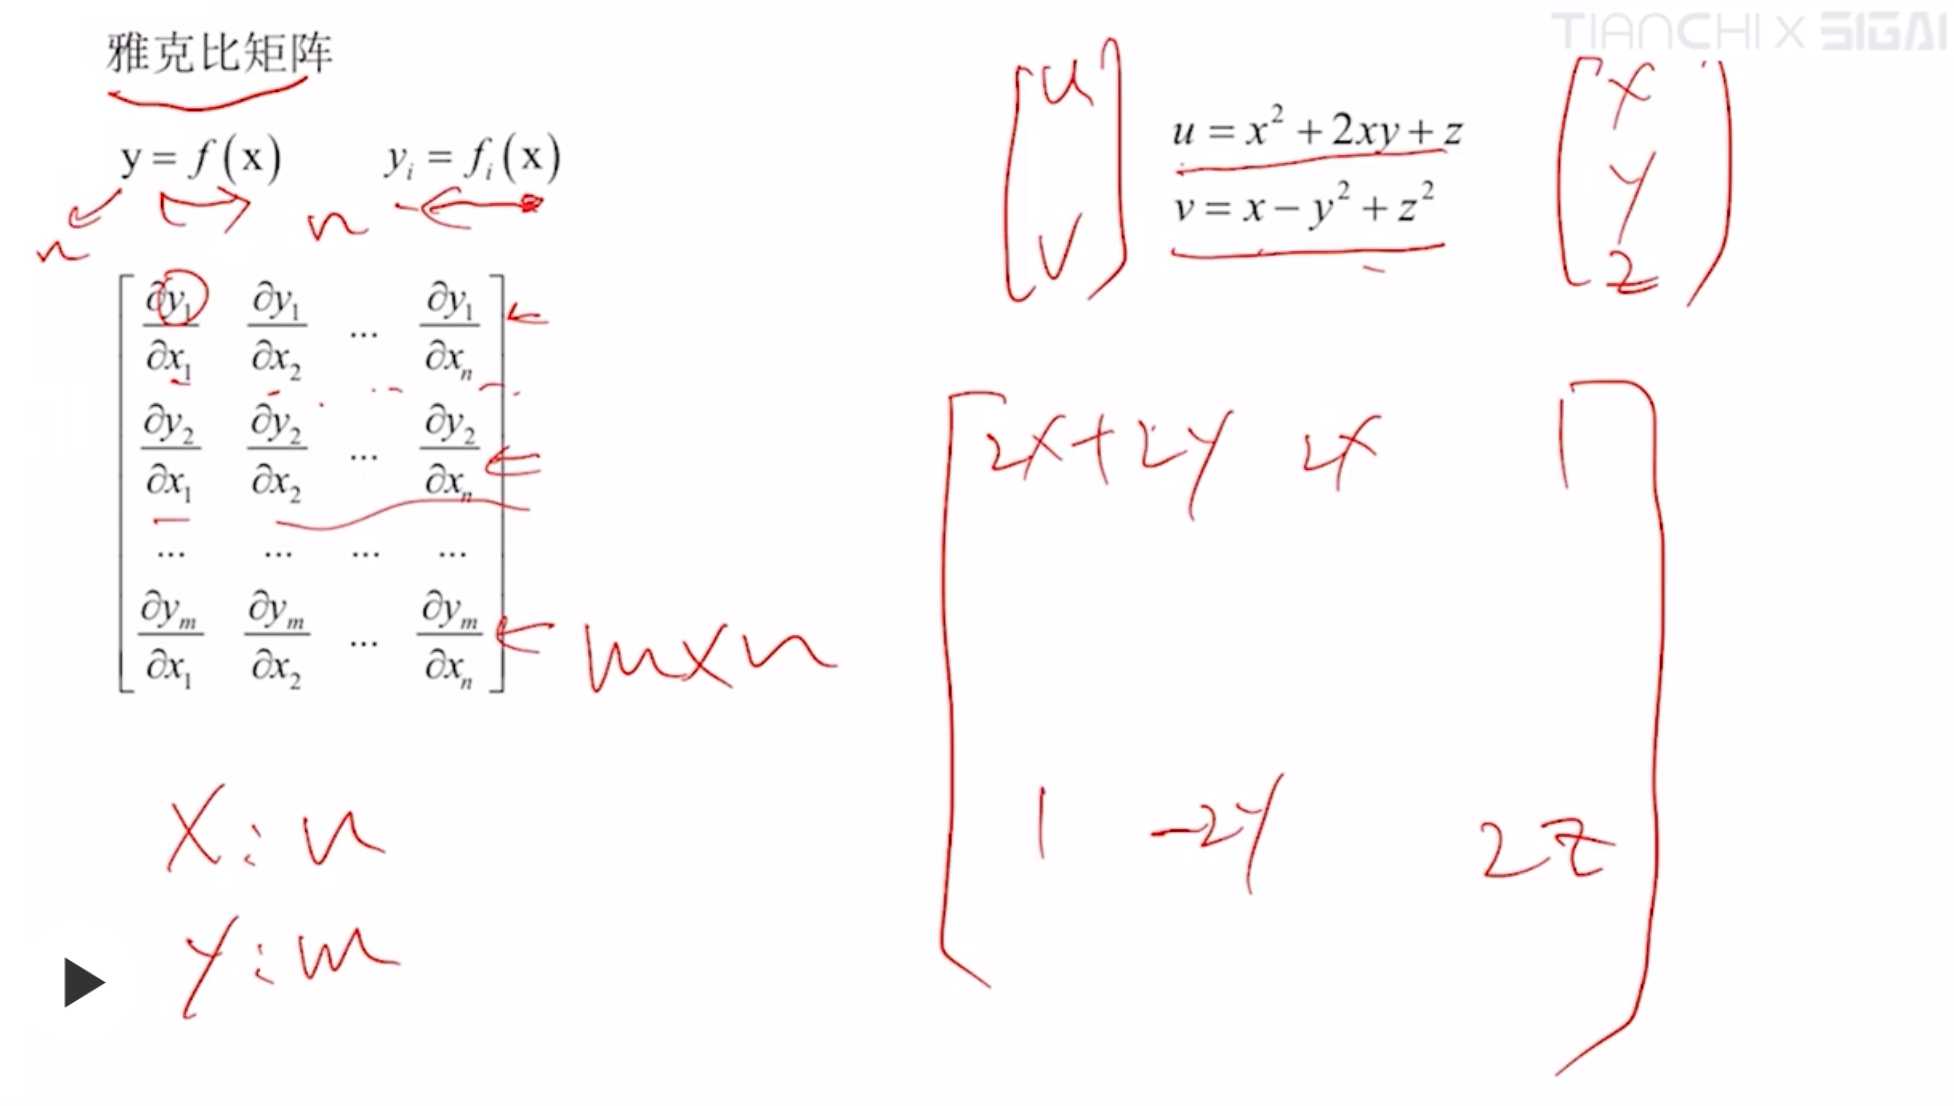 TIANCHI X SIGAI
雅克比矩阵
y = f(x)    y_i = f_i(x)
n    n
∂y_1/∂x_1  ∂y_1/∂x_2  ...  ∂y_1/∂x_n
∂y_2/∂x_1  ∂y_2/∂x_2  ...  ∂y_2/∂x_n
...  ...  ...  ...
∂y_m/∂x_1  ∂y_m/∂x_2  ...  ∂y_m/∂x_n
m×n
x: n
y: m
u
v
u = x² + 2xy + z
v = x − y² + z²
x
y
z
2x+2y  2x  1
1  -2y  2z